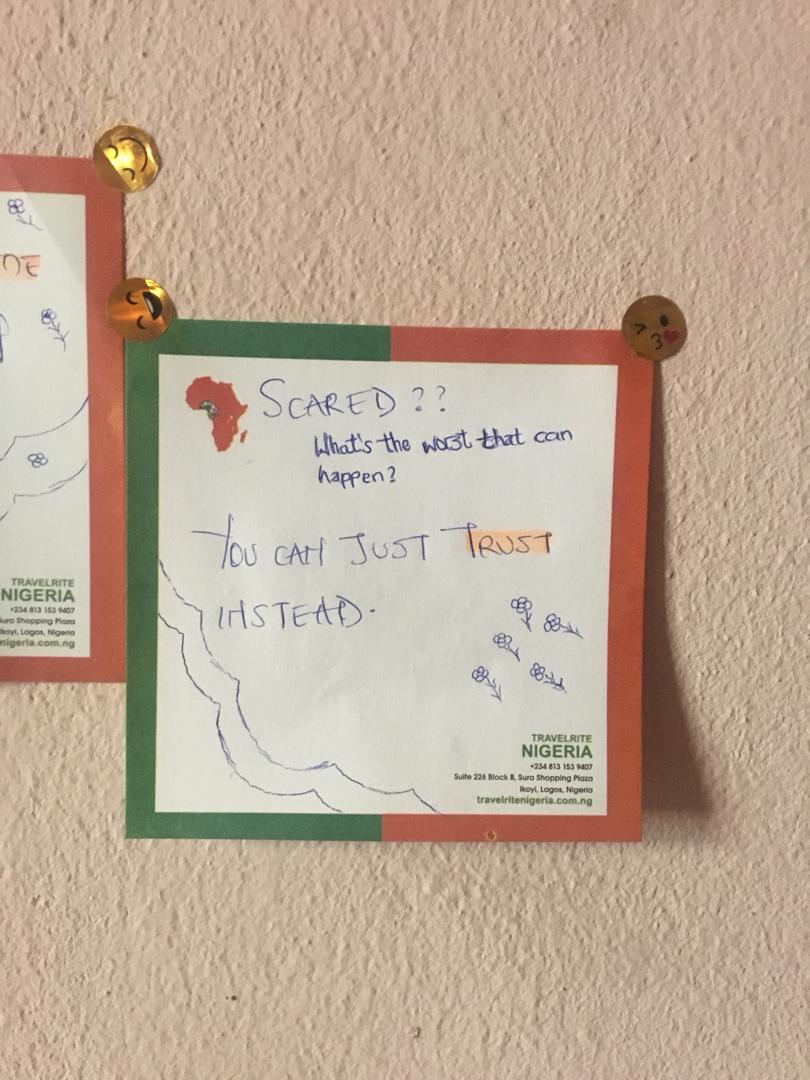 SCARED ??
What's the worst that can
happen?
YOU CAN JUST TRUST
INSTEAD.
TRAVELRITE
NIGERIA
+234 813 153 9407
Suite 226 Block B, Sura Shopping Plaza
Ikoyi, Lagos, Nigeria
travelritenigeria.com.ng
TRAVELRITE
NIGERIA
+234 813 153 9407
Sura Shopping Plaza
Ikoyi, Lagos, Nigeria
nigeria.com.ng